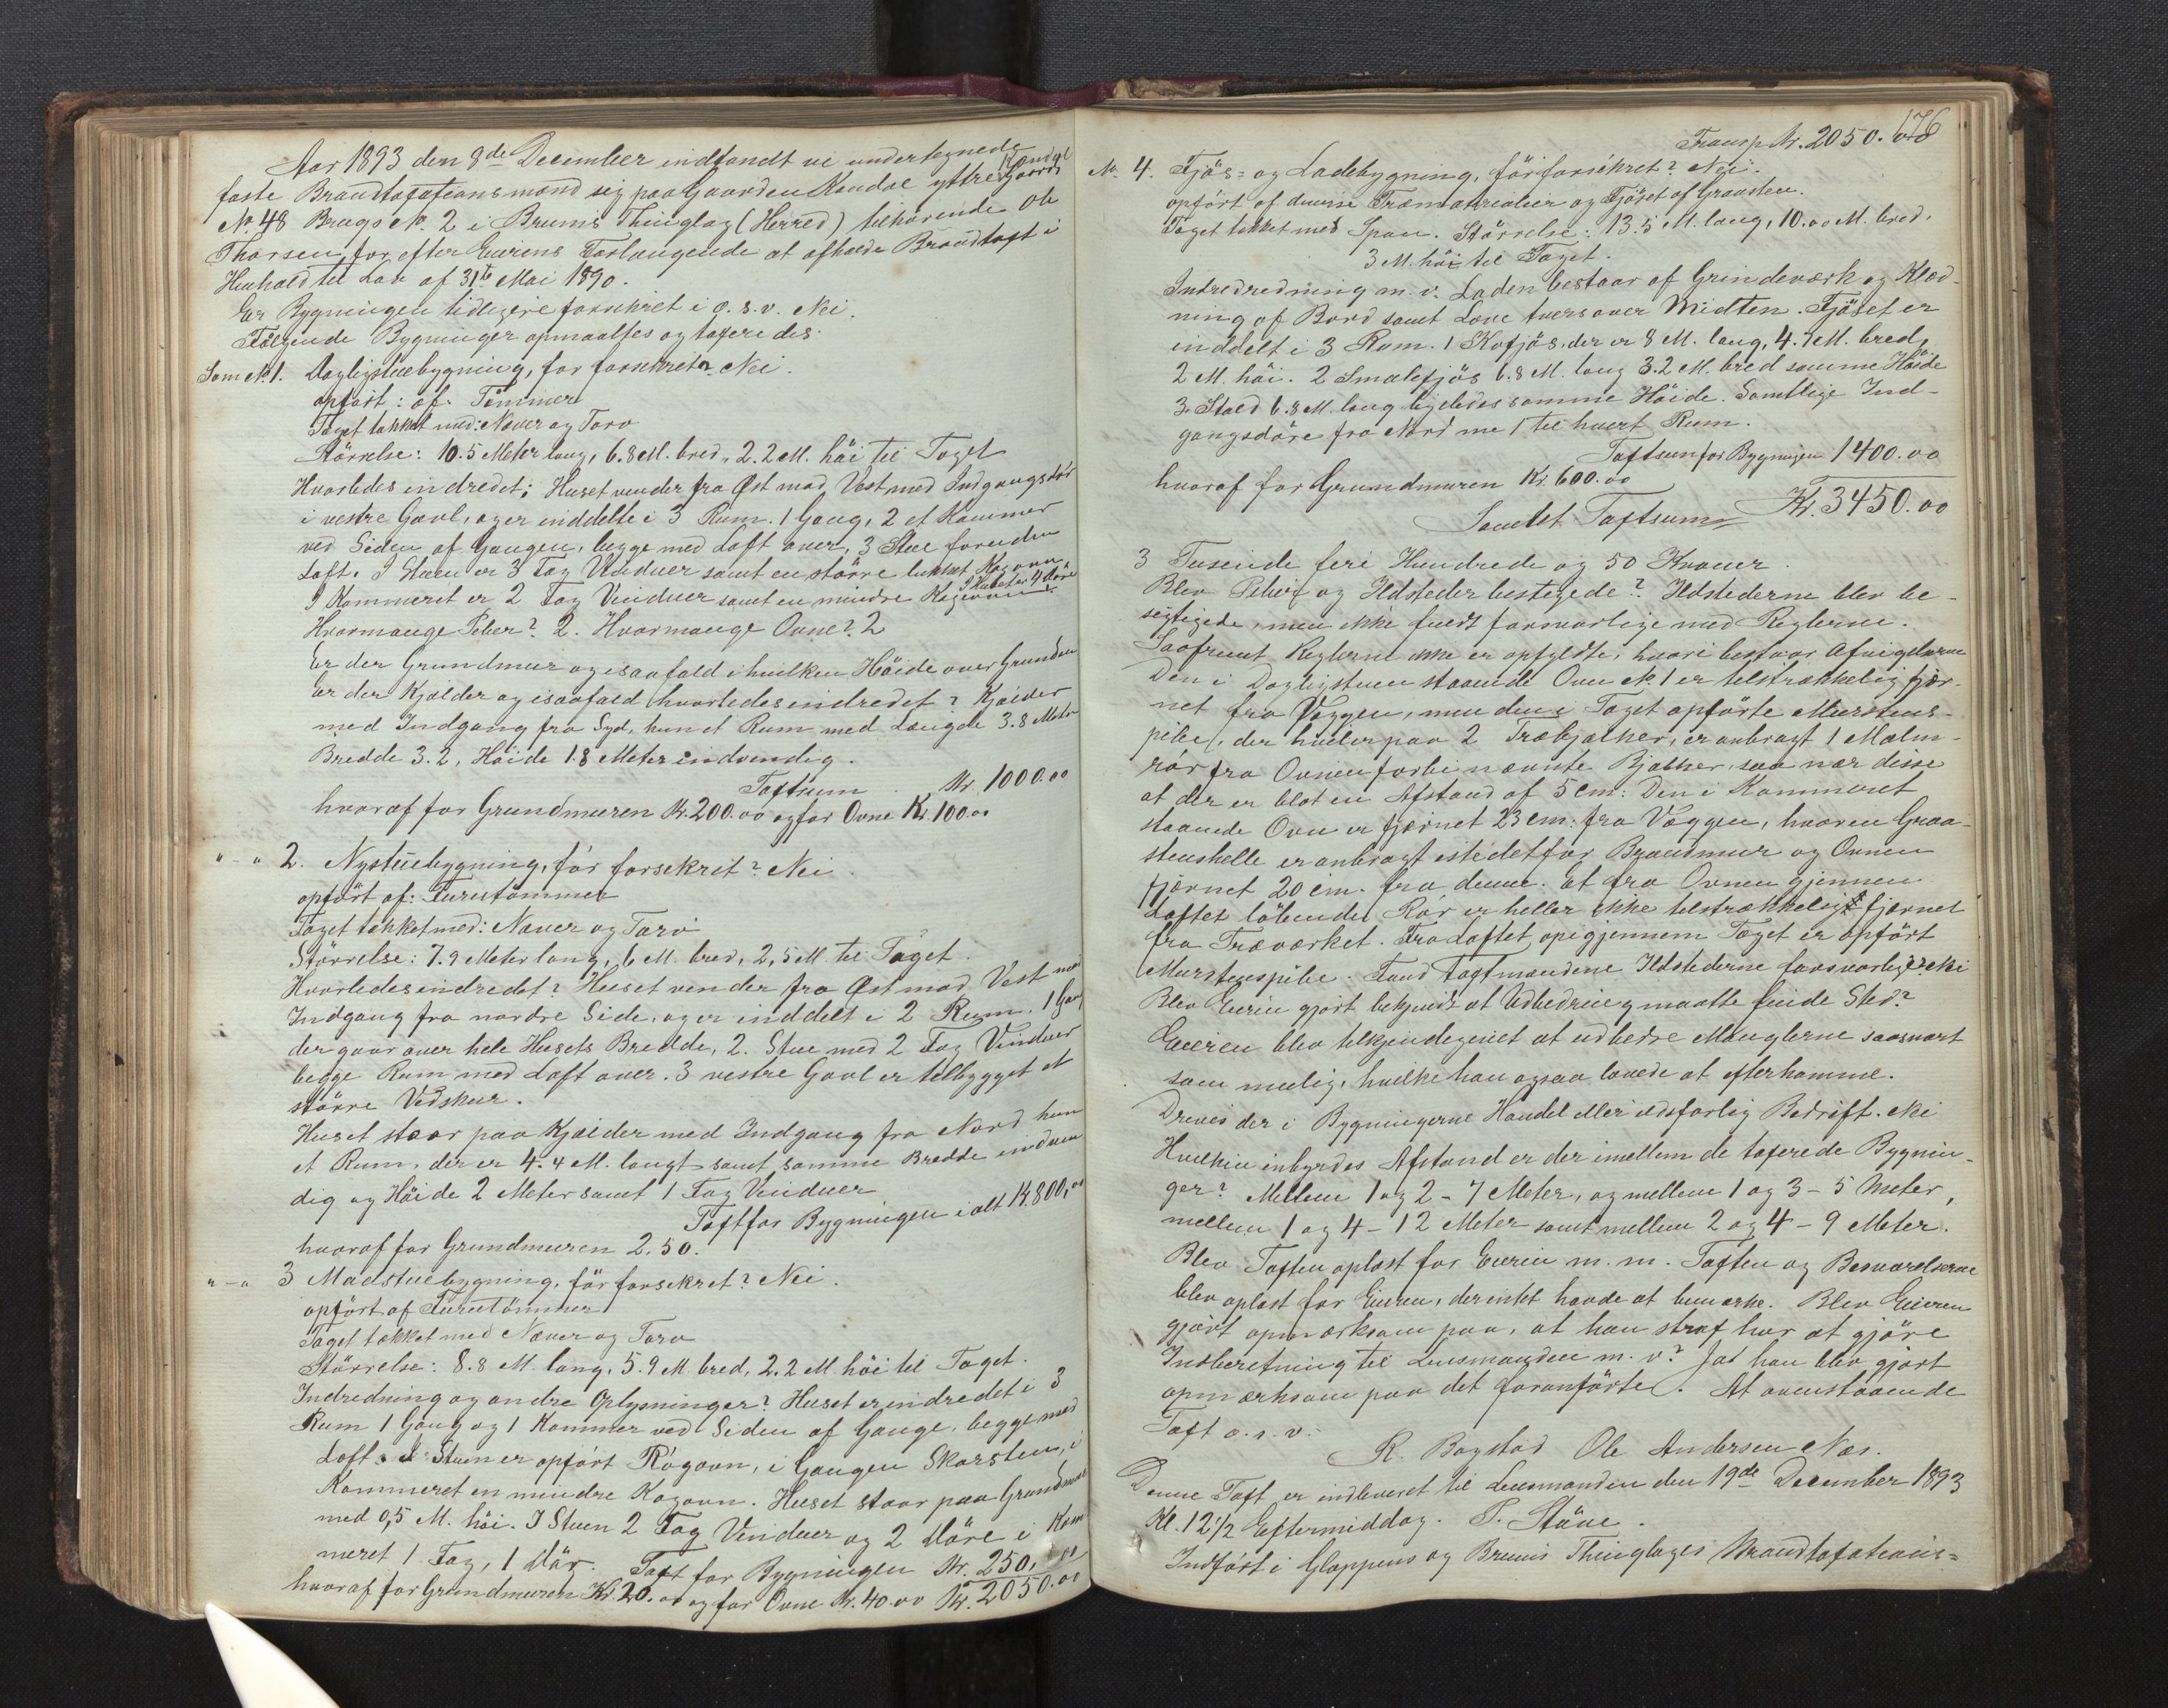 Aar 1893 den 9de December indfandt vi undertegnede
faste Brandtaxationsmænd sig paa Gaarden Kandal yttre Gaards
No. 48 Brugs No. 2 i Brems Thinglag (Herred) tilhørende Ole
Thorsen, for efter Eierens Forlangende at afholde Brandtaxt i
Henhold til Lov af 31te Mai 1890.
Er Bygningen tidligere forsikret i o. s. v. Nei.
Følgende Bygninger opmaaltes og taxeredes:
Som No 1. Dagligstuebygning, før forsikret? Nei.
opført: af: Tømmer
Taget tækket med: Næver og Torv
Størrelse: 10.5 Meter lang, 6.8 M. bred, 2.2 M. høi til Taget
Hvorledes indredet: Huset vender fra Øst mod Vest med Indgangsdør
i vestre Gavl, og er inddelt i 3 Rum. 1 Gang, 2 et Kammer
ved Siden af Gangen, begge med Loft over, 3 Stue foruden
Loft. I Stuen er 3 Fag Vinduer samt en større lukket Kogeovn
I Kammeret er 2 Fag Vinduer samt en mindre Kogeovn. I Huset er 4 Døre
Hvormange Piber? 2. Hvormange Ovne? 2
Er der Grundmur og isaafald i hvilken Høide over Grunden
Er der Kjælder og isaafald hvorledes indredet? Kjælder
med Indgang fra Syd, kun et Rum med Længde 3.8 Meter
Bredde 3.2, Høide 1.8 Meter indvendig.
Taxtsum Kr. 1000.00
hvoraf for Grundmuren Kr. 200.00 og for Ovne Kr. 100.00
" - " 2. Nystuebygning, før forsekret? Nei.
opført af: Furutømmer
Taget tækket med: Næver og Torv
Størrelse: 7.9 Meter lang, 6 M. bred, 2,5 M. til Taget.
Hvorledes indredet? Huset vender fra Øst mod Vest med
Indgang fra nordre Side, og er inddelt i 2 Rum, 1 Gang
der gaar over hele Husets Bredde, 2. Stue med 2 Fag Vinduer
begge Rum med Loft over. 3 vestre Gavl er tilbygget et
større Vedskur.
Huset staar paa Kjælder med Indgang fra Nord kun
et Rum, der er 4.4 M. langt samt samme Bredde indven
dig og Høide 2 Meter samt 1 Fag Vinduer
Taxt for Bygningen ialt Kr. 800,00
hvoraf for Grundmuren 2.50.
" - " 3 Madstuebygning, før forsekret? Nei.
opført af Furutømmer
Taget tækket med Næver og Torv
Størrelse: 8.8 M. lang, 5.9 M bred, 2.2 M høi til Taget.
Indredning og andre Oplysninger? Huset er indredet i 3
Rum 1 Gang og 1 Kammer ved Siden af Gange, begge med
Loft. I Stuen er opført Røgovn, i Gangen Skorsten, i
Kammeret en mindre Kogovn. Huset staar paa Grundmur
med 0,5 M. høi. I Stuen 2 Fag Vinduer og 2 Døre i Kam
meret 1 Fag, 1 Dør. Taxt for Bygningen Kr. 250,00
hvoraf for Grundmuren Kr. 20.00 og for Ovne Kr. 40.00 Kr. 2050.00
176
Transp. Kr. 2050.00
No. 4. Fjøs- og Ladebygning, før forsikret? Nei.
opført af diverse Træmaterialier og Fjøset af Graasten.
Taget tækket med Spon. Størrelse: 13.5 M. lang, 10.00 M. bred,
3 M. høi til Taget.
Indredredning m. v. Laden bestaar af Grindeværk og Klæd-
ning af Bord samt Love tvers over Midten. Fjøset er
inddelt i 3 Rum. 1 Kofjøs, der er 8 M. lang, 4.7 M. bred,
2 M. høi. 2 Smalefjøs 6.8 M. lang 3.2 M. bred samme Høide
3. Stald 6.8 M. lang ligeledes samme Høide. Samtlige Ind-
gangsdøre fra Nord me 1 til hvert Rum.
Taxtsum for Bygningen 1400.00
hvoraf for Grundmuren Kr. 600.00
Samlet Taxtsum Kr. 3450.00
3 Tusende fire Hundrede og 50 Kroner.
Blev Piber og Ildsteder besigtigede? Ildstederne blev be-
sigtigede, men ikke fundt forsvarlige med Reglerne.
Saafremt Reglerne ikke er opfyldte, hvori bestaar Afvigelserne
Den i Dagligstuen staaende Ovn No. 1 er tilstrækkelig fjær-
net fra Væggen, men den i Taget opførte Murstens-
pibe, der hviler paa 2 Træbjælker, er anbragt 1 Malm-
rør fra Ovnen forbi nævnte Bjælker, saa nær disse
at der er blot en Afstand af 5 cm: Den i Kammeret
staaende Ovn er fjærnet 23 cm: fra Væggen, hvor en Graa-
stenshelle er anbragt istedetfor Brandmur og Ovnen
fjærnet 20 cm. fra denne. at fra Ovnen gjennem
Loftet løbende Rør er heller ikke tilstrækkelig fjærnet
fra Træværket. Fra Loftet op igjennem Taget er opført
Murstenspibe. Fand Taxtmændene Ildstederne forsvarlige? Nei
Blev Eieren gjort bekjendt at Udbedring maatte finde Sted?
Eieren blev tilkjendegivet at udbedre Manglerne saasnart
som mulig, hvilke han ogsaa lovede at efterkomme.
Dreves der i Bygningerne Handel eller ildsfarlig Bedrift. Nei
Hvilken inbyrdes Afstand er der imellem de taxerede Bygnin-
ger? Mellem 1 og 2 - 7 Meter, og mellem 1 og 3 - 5 Meter,
mellem 1 og 4 - 12 Meter samt mellem 2 og 4 - 9 Meter.
Blev Taxten oplæst for Eieren m. m. Taxten og Besvarelserne
blev oplæst for Eieren, der intet havde at bemærke. Blev Eieren
gjort opmærksom paa, at han straf har at gjøre
Indberetning til Lensmanden m. v? Ja! han blev gjort
opmærksom paa det foranførte. At ovenstaaende
Taxt o. s. v.
R. Bogstad Ole Andersen Næs.
Denne Taxt er indleveret til Lensmanden den 19de December 1893
Kl. 12 1/2 Eftermiddag. P. Støve.
Indført i Gloppens og Brems Thinglages Brandtaxations=